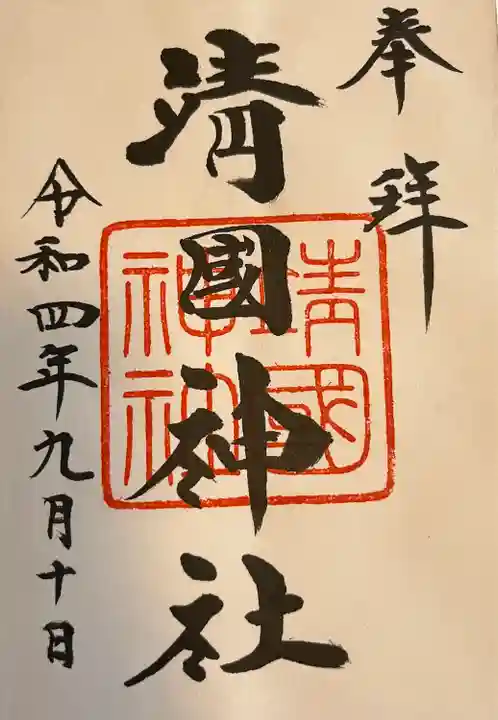 奉拜
靖國神社
令和四年九月十日
靖國
神社